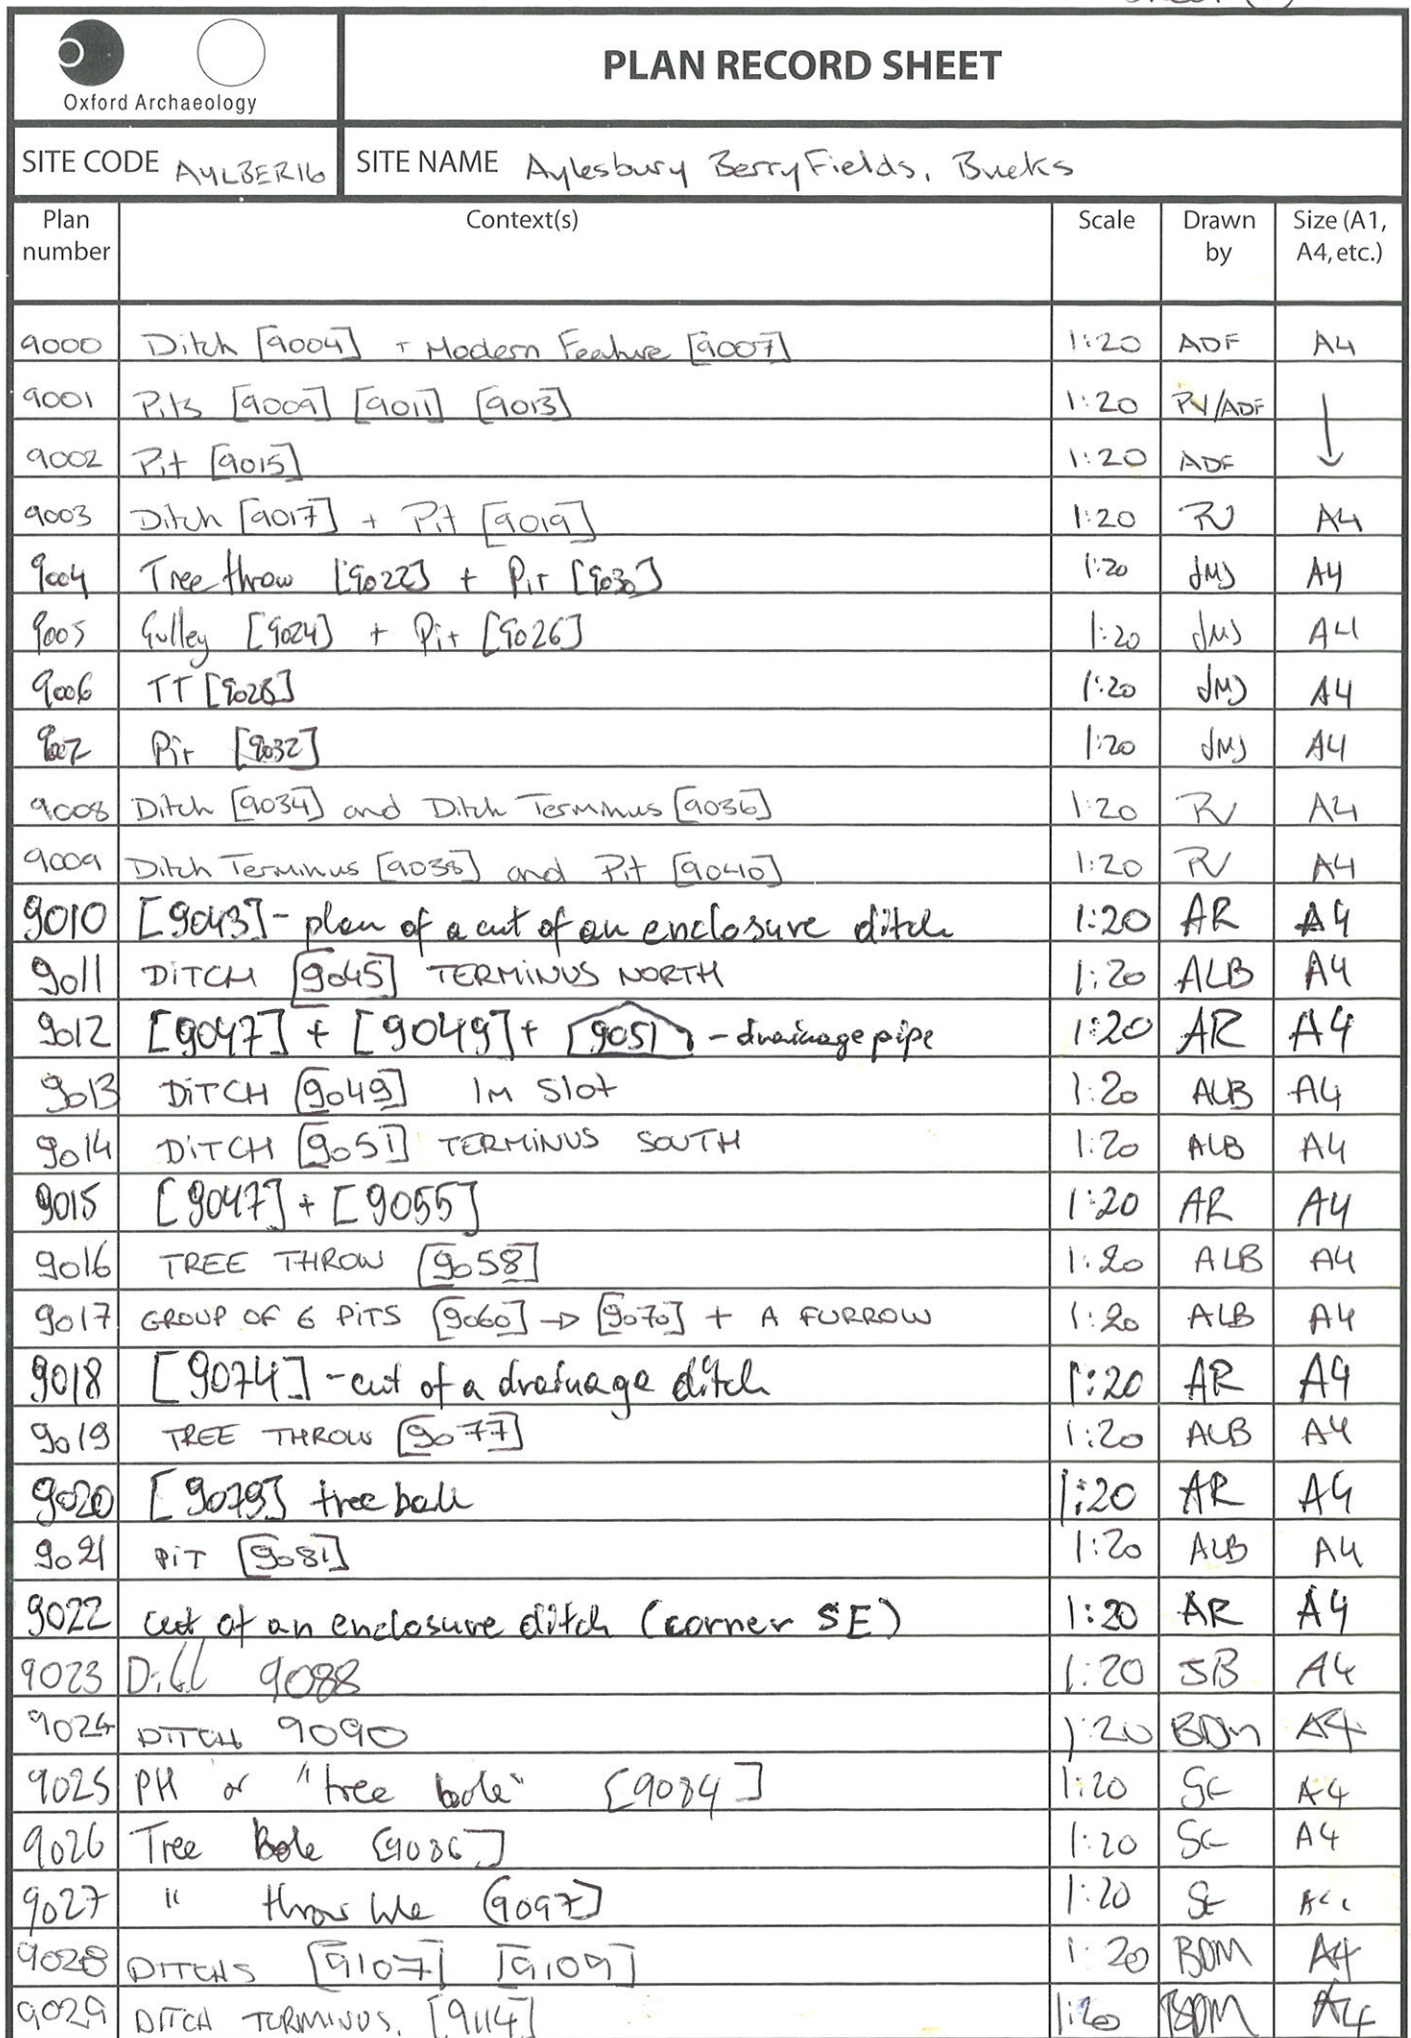 Oxford Archaeology
PLAN RECORD SHEET
SITE CODE AYLBER16 SITE NAME Aylesbury BerryFields, Bucks
Plan number Context(s) Scale Drawn by Size (A1, A4, etc.)
9000 Ditch [9004] + Modern Feature [9007] 1:20 ADF A4
9001 Pits [9009] [9011] [9013] 1:20 RV/ADF
9002 Pit [9015] 1:20 ADF
9003 Ditch [9017] + Pit [9019] 1:20 RV A4
9004 Tree throw [9022] + Pit [9030] 1:20 JMJ A4
9005 Gulley [9024] + Pit [9026] 1:20 JMJ A4
9006 TT [9028] 1:20 JMJ A4
9007 Pit [9032] 1:20 JMJ A4
9008 Ditch [9034] and Ditch Terminus [9036] 1:20 RV A4
9009 Ditch Terminus [9038] and Pit [9040] 1:20 RV A4
9010 [9043] - plan of a cut of an enclosure ditch 1:20 AR A4
9011 DITCH [9045] TERMINUS NORTH 1:20 ALB A4
9012 [9047] + [9049] + [9051] - drainage pipe 1:20 AR A4
9013 DITCH [9049] 1M Slot 1:20 ALB A4
9014 DITCH [9051] TERMINUS SOUTH 1:20 ALB A4
9015 [9047] + [9055] 1:20 AR A4
9016 TREE THROW [9058] 1:20 ALB A4
9017 GROUP OF 6 PITS [9060] → [9070] + A FURROW 1:20 ALB A4
9018 [9074] - cut of a drainage ditch 1:20 AR A4
9019 TREE THROW [9077] 1:20 ALB A4
9020 [9079] tree bole 1:20 AR A4
9021 PIT [9081] 1:20 ALB A4
9022 cut of an enclosure ditch (corner SE) 1:20 AR A4
9023 Ditch 9088 1:20 JB A4
9024 DITCH 9090 1:20 BDM A4
9025 PH or "tree bole" [9084] 1:20 SC A4
9026 Tree Bole [9086] 1:20 SC A4
9027 " throw hole [9097] 1:20 SC
9028 DITCHS [9107] [9109] 1:20 BDM A4
9029 DITCH TURMINUS. [9114] 1:20 BDM A4